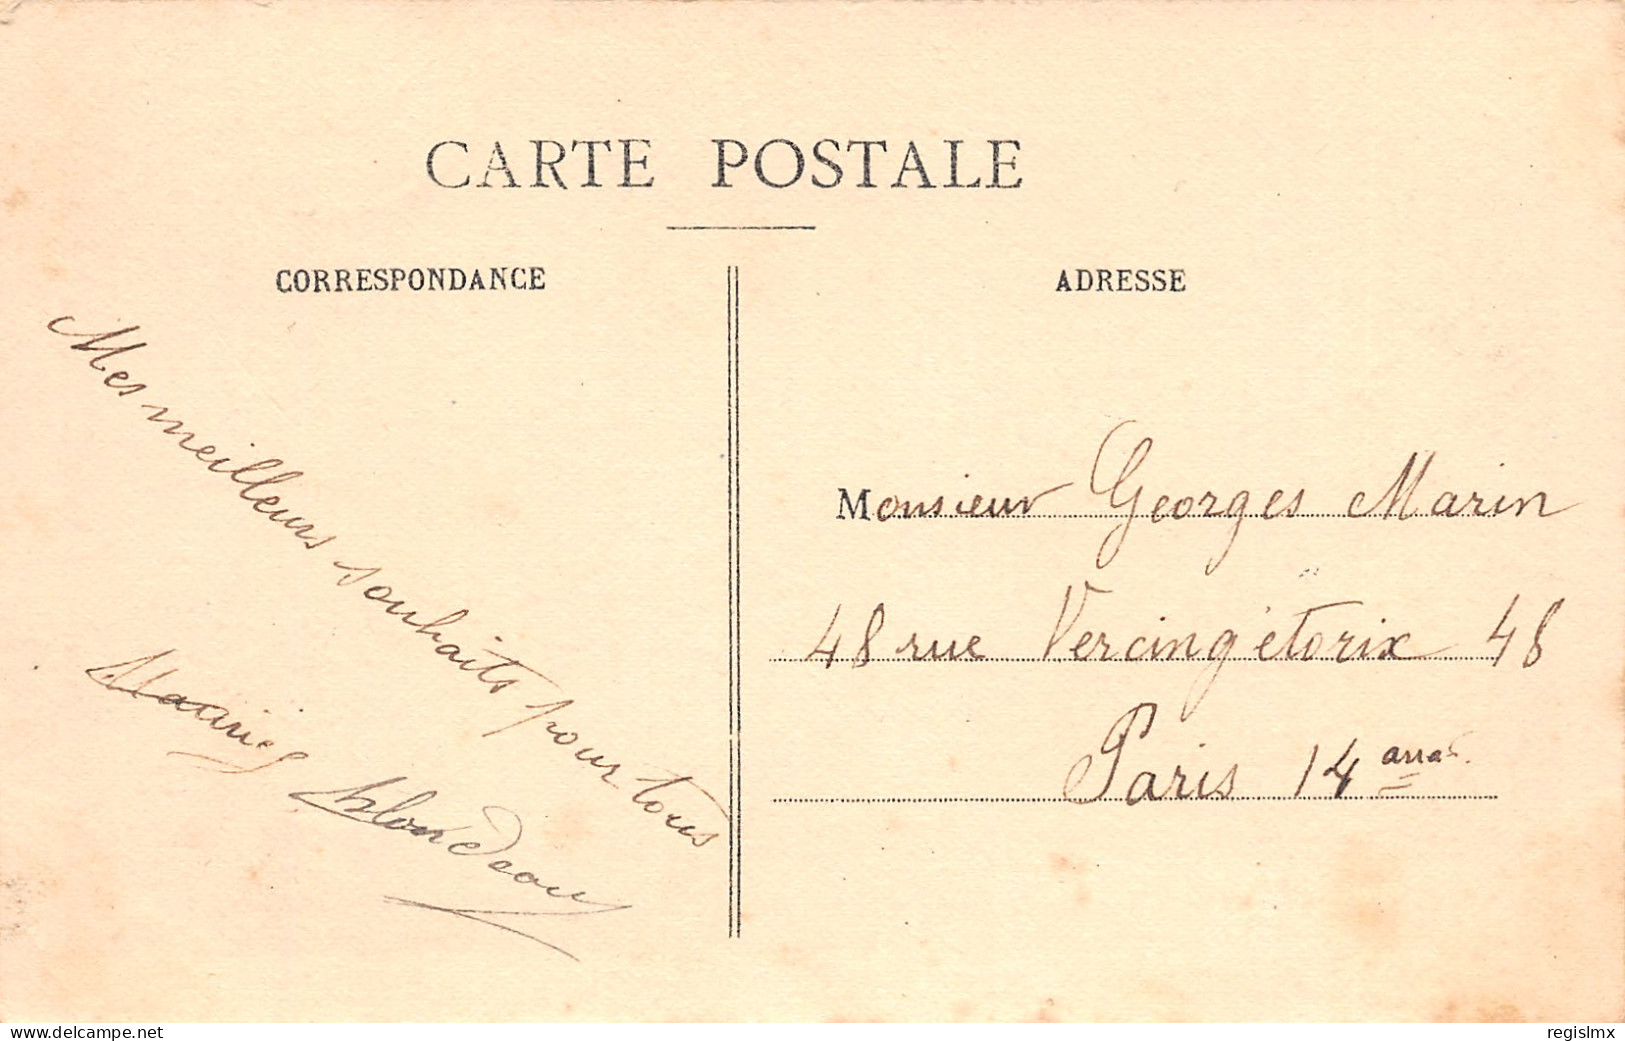 CARTE POSTALE
CORRESPONDANCE
ADRESSE
Mes meilleurs souhaits pour tous
Blondeau
Monsieur Georges Marin
48 rue Vercingétorix 48
Paris 14 arrdt.
www.delcampe.net
regislmx